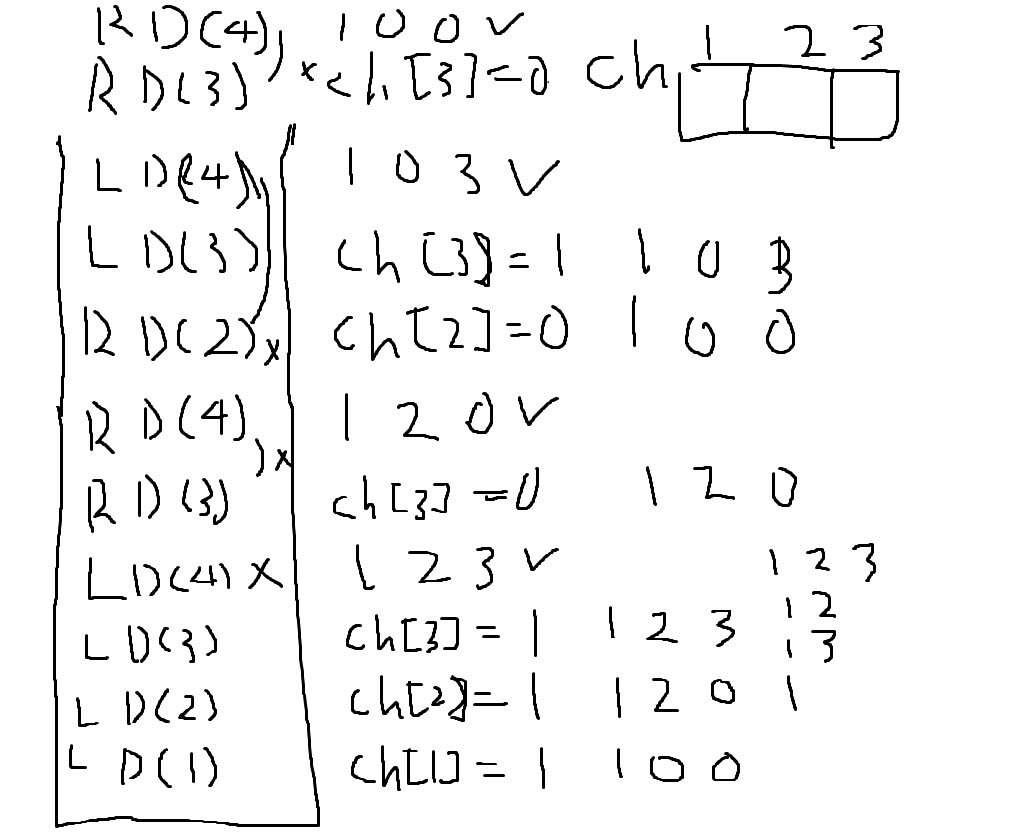 RD(4), 1 0 0 ✓
RD(3) × ch[3]=0 ch 1 2 3
LD(4) 1 0 3 ✓
LD(3) ch[3]=1 1 0 3
RD(2) × ch[2]=0 1 0 0
RD(4) 1 2 0 ✓
×
RD(3) ch[3]=0 1 2 0
LD(4) × 1 2 3 ✓ 1 2 3
1 2
LD(3) ch[3]=1 1 2 3 1 3
LD(2) ch[2]=1 1 2 0 1
LD(1) ch[1]=1 1 0 0